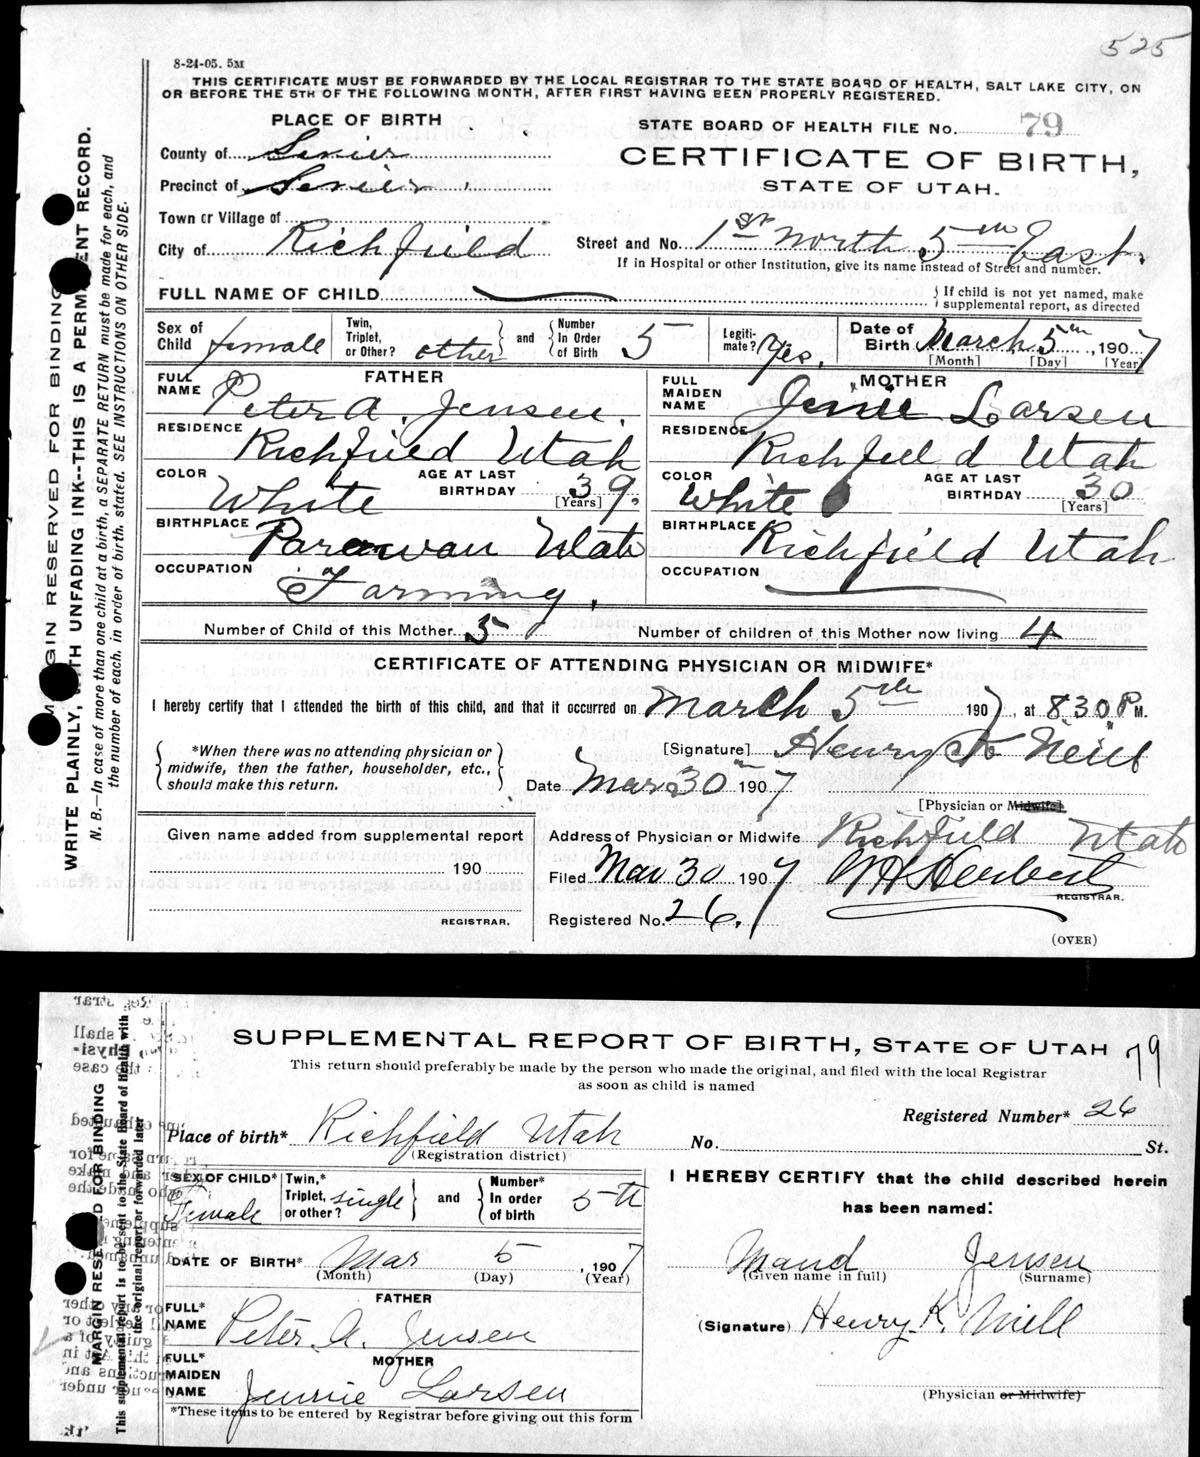 525
8-24-05. 5M
THIS CERTIFICATE MUST BE FORWARDED BY THE LOCAL REGISTRAR TO THE STATE BOARD OF HEALTH, SALT LAKE CITY, ON
OR BEFORE THE 5TH OF THE FOLLOWING MONTH, AFTER FIRST HAVING BEEN PROPERLY REGISTERED.
PLACE OF BIRTH
STATE BOARD OF HEALTH FILE No. 79
County of Sevier
CERTIFICATE OF BIRTH,
Precinct of Sevier
STATE OF UTAH.
Town or Village of
City of Richfield
Street and No. 1st North 5th East.
If in Hospital or other Institution, give its name instead of Street and number.
FULL NAME OF CHILD
If child is not yet named, make
supplemental report, as directed
Sex of Child female
Twin, Triplet, or Other? other and Number In Order of Birth 5
Legiti- mate? Yes.
Date of Birth March 5th, 1907
[Month] [Day] [Year]
FATHER
FULL NAME Peter A. Jensen.
RESIDENCE Richfield Utah
COLOR White
AGE AT LAST BIRTHDAY 39. [Years]
BIRTHPLACE Parowan Utah
OCCUPATION Farming.
MOTHER
FULL MAIDEN NAME Jennie Larsen
RESIDENCE Richfield Utah
COLOR White
AGE AT LAST BIRTHDAY 30 [Years]
BIRTHPLACE Richfield Utah
OCCUPATION
Number of Child of this Mother 5
Number of children of this Mother now living 4
CERTIFICATE OF ATTENDING PHYSICIAN OR MIDWIFE*
I hereby certify that I attended the birth of this child, and that it occurred on March 5th 1907, at 8 30 P M.
*When there was no attending physician or
midwife, then the father, householder, etc.,
should make this return.
[Signature] Henry K Neill
Date Mar 30th 1907
[Physician or Midwife]
Given name added from supplemental report
190
REGISTRAR.
Address of Physician or Midwife Richfield Utah
Filed Mar 30 1907
REGISTRAR.
Registered No. 26.
(OVER)
MARGIN RESERVED FOR BINDING
WRITE PLAINLY, WITH UNFADING INK--THIS IS A PERMANENT RECORD.
N. B.—In case of more than one child at a birth, a SEPARATE RETURN must be made for each, and
the number of each, in order of birth, stated. SEE INSTRUCTIONS ON OTHER SIDE.
SUPPLEMENTAL REPORT OF BIRTH, STATE OF UTAH 79
This return should preferably be made by the person who made the original, and filed with the local Registrar
as soon as child is named
Registered Number* 26
Place of birth* Richfield Utah No. St.
(Registration district)
SEX OF CHILD* Female
Twin,* Triplet, or other? single and Number* In order of birth 5-th
DATE OF BIRTH* Mar 5, 1907
(Month) (Day) (Year)
FATHER
FULL* NAME Peter A. Jensen
MOTHER
FULL* MAIDEN NAME Jennie Larsen
*These items to be entered by Registrar before giving out this form
I HEREBY CERTIFY that the child described herein
has been named:
Maud Jensen
(Given name in full) (Surname)
(Signature) Henry K. Neill
(Physician or Midwife)
MARGIN RESERVED FOR BINDING
This supplemental report is to be sent to the State Board of Health with
the original report or forwarded later